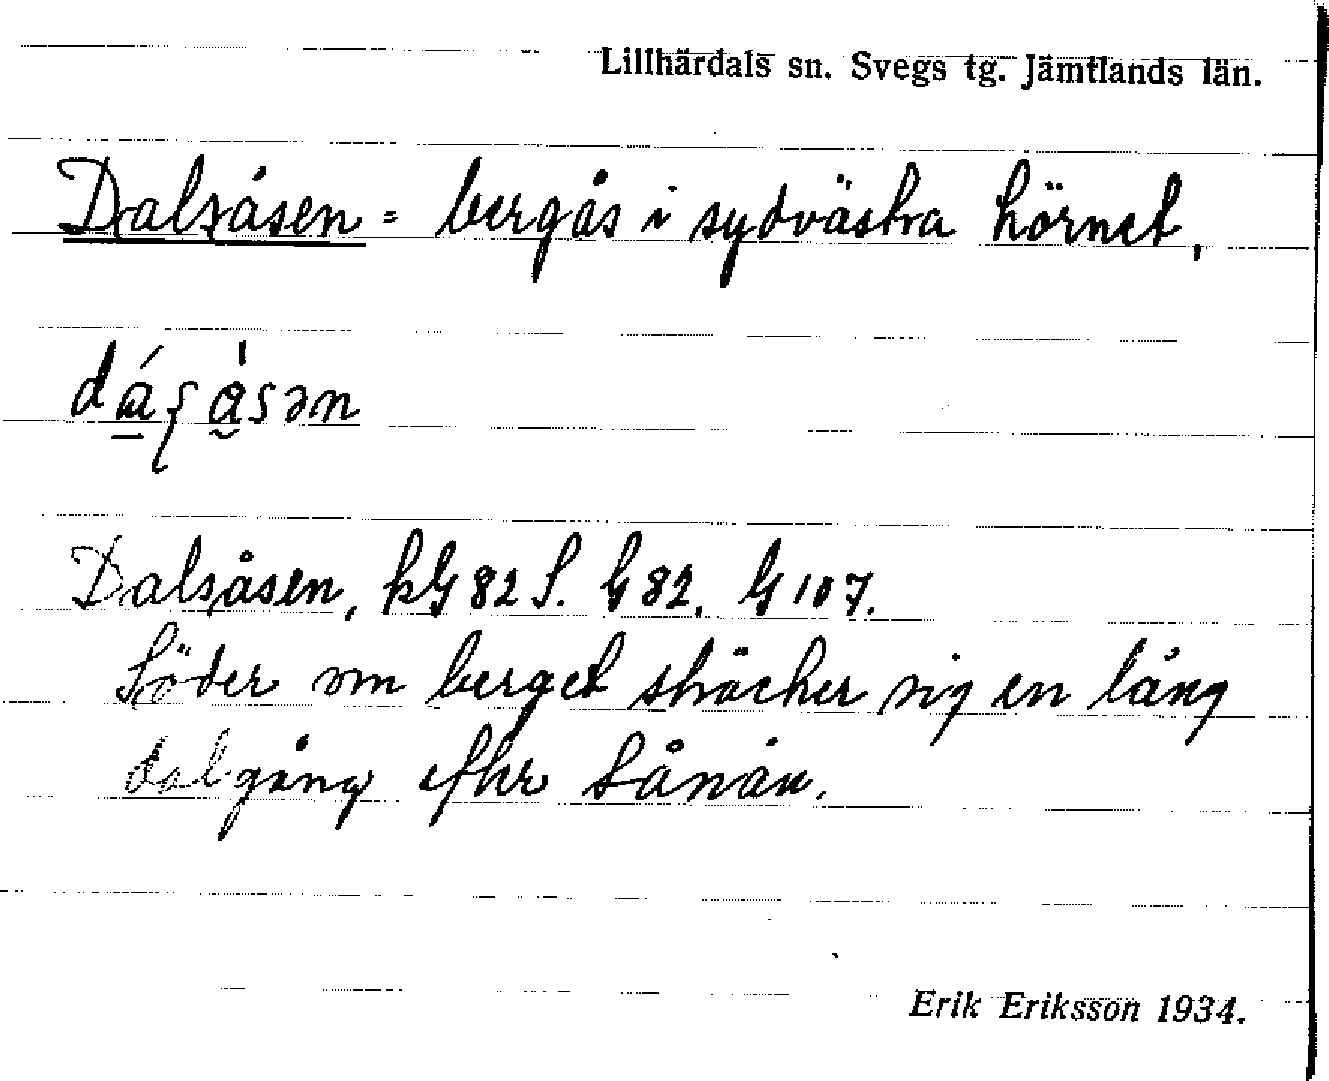 Lillhärdals sn. Svegs tg. Jämtlands län.
Dalsåsen = bergås i sydvästra hörnet,
Dalsåsen, kG 82 S. G 82. G 107.
Söder om berget sträcker sig en lång
dalgång efter Sånån.
Erik Eriksson 1934.